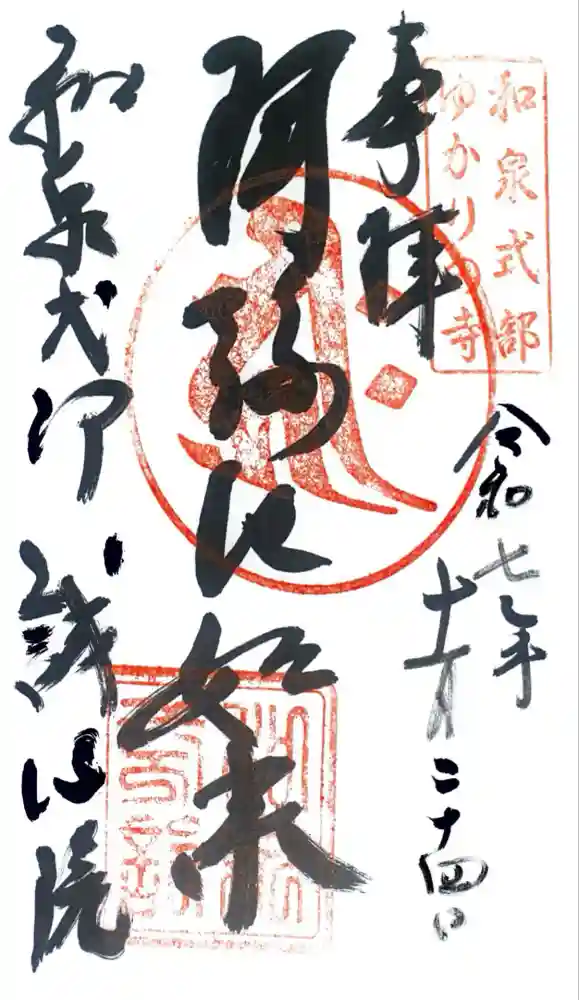 和泉式部
ゆかりの寺
奉拝
令和七年
十一月
二十四日
阿弥陀如来
和泉式部
誠心院